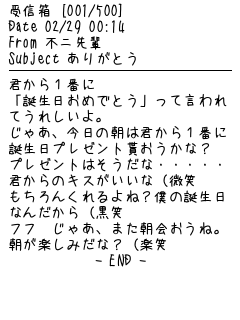 受信箱 [001/500]
Date 02/29 00:14
From 不二先輩
Subject ありがとう
君から１番に
「誕生日おめでとう」って言われ
てうれしいよ。
じゃあ、今日の朝は君から１番に
誕生日プレゼント貰おうかな？
プレゼントはそうだな・・・・・
君からのキスがいいな（微笑
もちろんくれるよね？僕の誕生日
なんだから（黒笑
フフ　じゃあ、また朝会おうね。
朝が楽しみだな？（楽笑
- END -